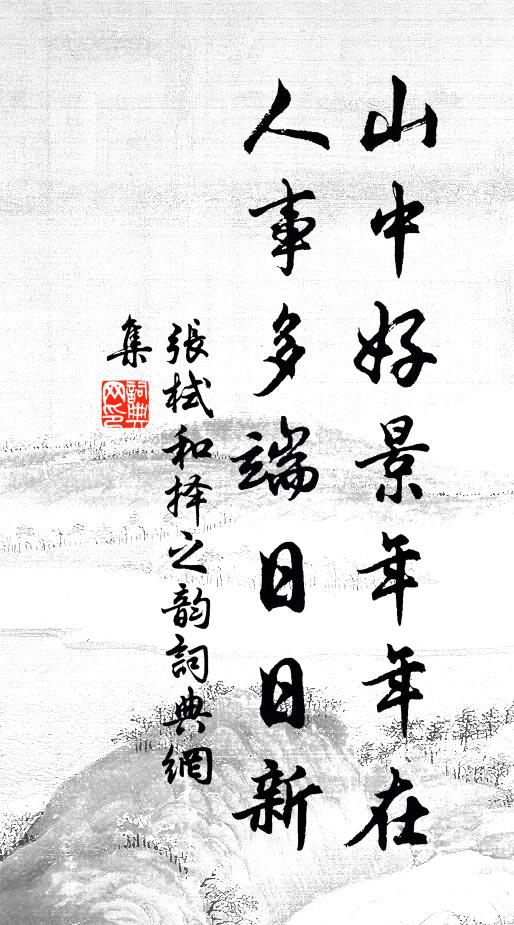 山中好景年年在
人事多端日日新
張栻和择之韵詞典網
集
詞典
网印